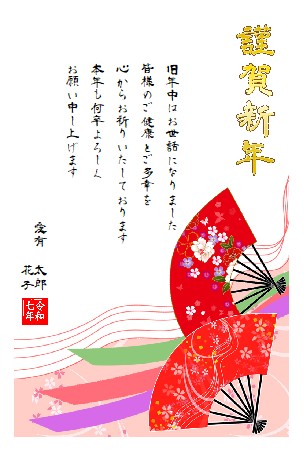 謹賀新年
旧年中はお世話になりました
皆様のご健康とご多幸を
心からお祈りいたしております
本年も何卒よろしく
お願い申し上げます
愛有
太郎
花子
令和
七年